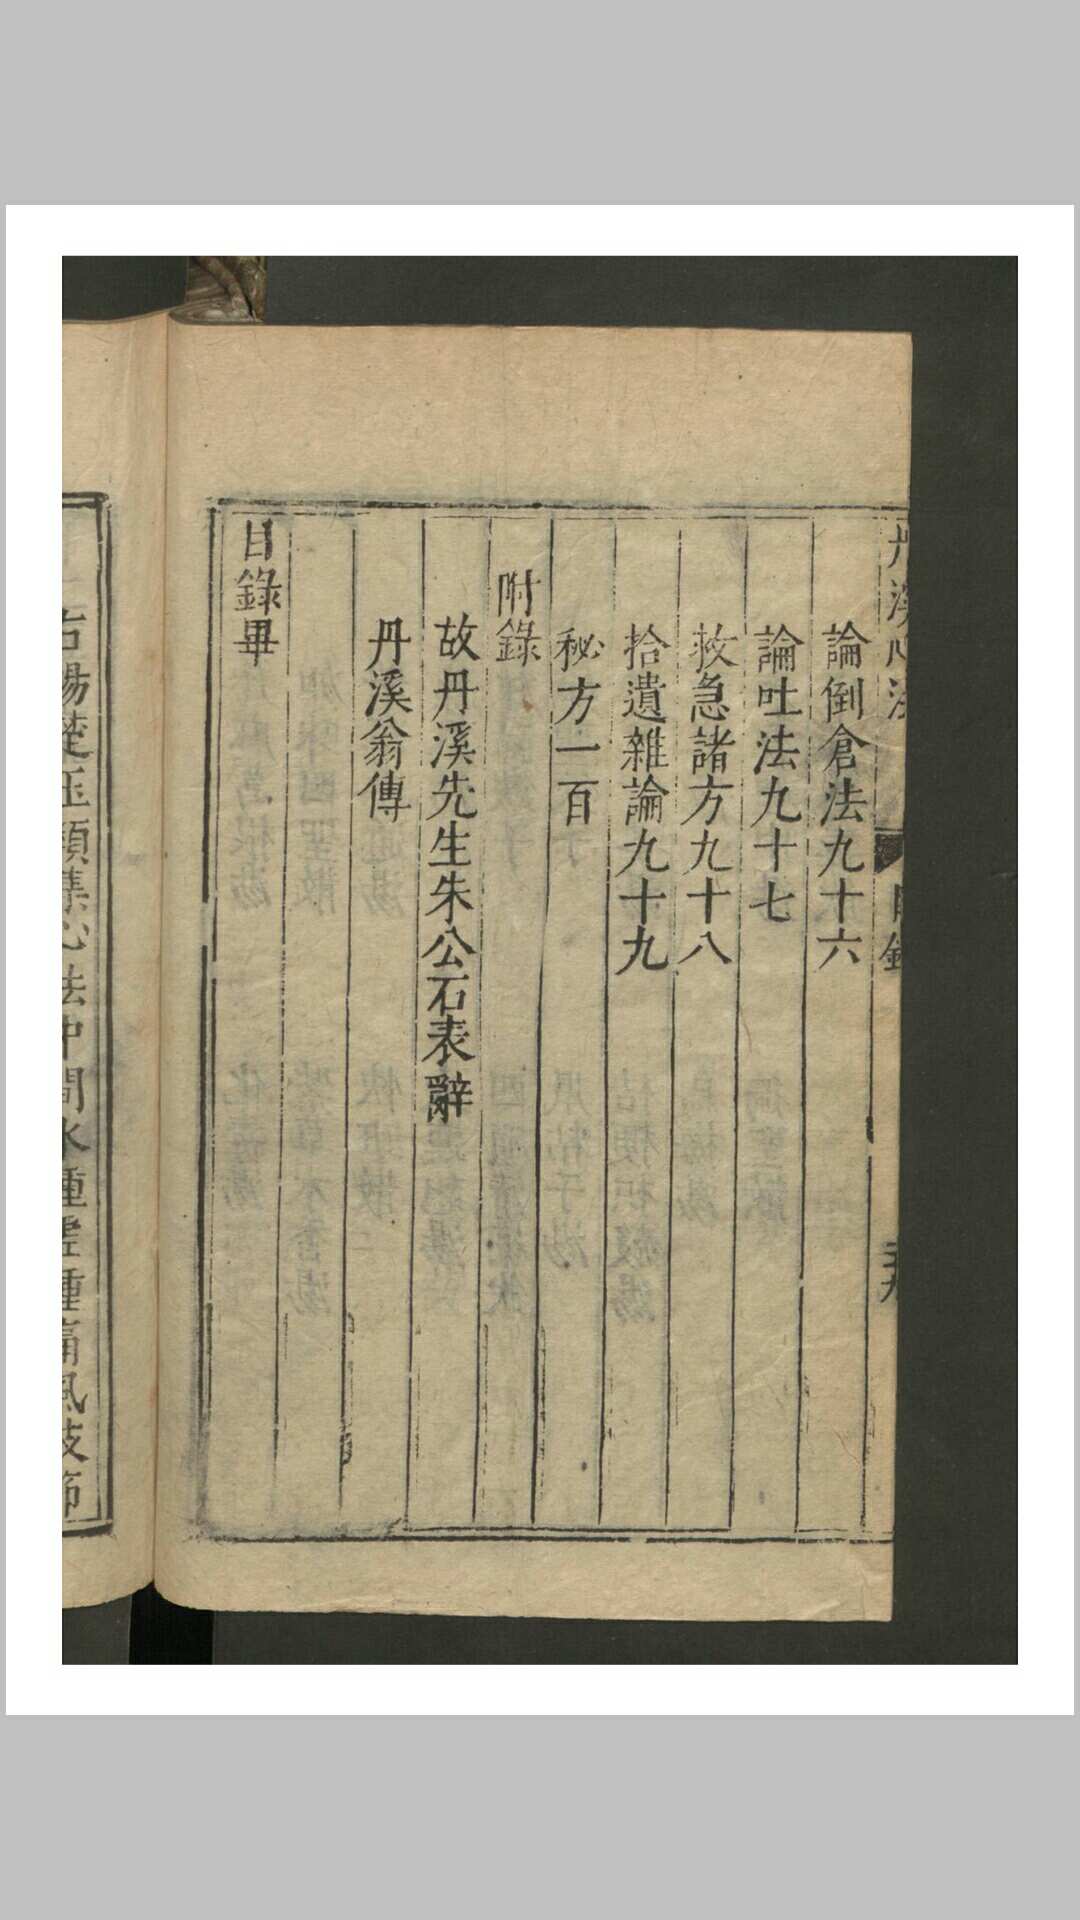 丹溪心法 目錄
論倒倉法九十六
論吐法九十七
救急諸方九十八
拾遺雜論九十九
秘方一百
附錄
故丹溪先生朱公石表辭
丹溪翁傳
目錄畢
心法中間水腫虛腫痛風